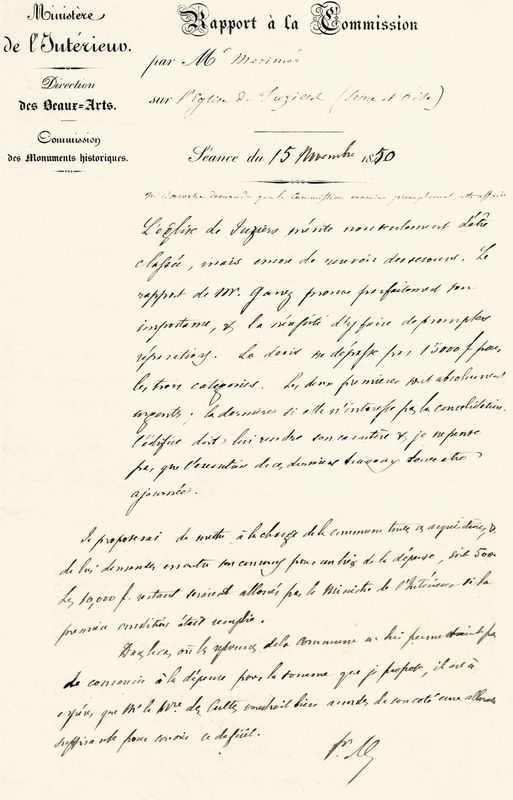 Ministère
de l'Intérieur.
Direction
des Beaux-Arts.
Commission
des Monuments historiques.
Rapport à la Commission
par Mr Merimée
sur l'Eglise de Juziers (Seine et Oise).
Séance du 15 Novembre 1850
demande que la Commission examine promptement cette affaire
L'église de Juziers mérite non seulement d'être
classée, mais encore de recevoir des secours. Le
rapport de Mr. Garrez prouve parfaitement son
importance, & la nécessité d'y faire de promptes
réparations. Le devis ne dépasse pas 15000 f pour
les trois catégories. Les deux premières sont absolument
urgentes; la dernière si elle n'intéresse pas la consolidation
l'édifice doit lui rendre son caractère & je ne pense
pas que l'exécution de ces derniers travaux doive être
ajournée.
Je proposerai de mettre à la charge de la commune toutes &
de lui demander en outre son concours pour un tiers de la dépense, soit 5000
Les 10,000 f. restant seraient alloués par le Ministre de l'Intérieur si la
première condition était remplie.
Dans le cas où les ressources de la commune ne lui permettraient pas
de concourir à la dépense pour la somme que je propose, il est à
espérer que Mr le Mtre des Cultes voudrait bien accorder de son coté une allocation
suffisante pour couvrir ce déficit.
Pr. My